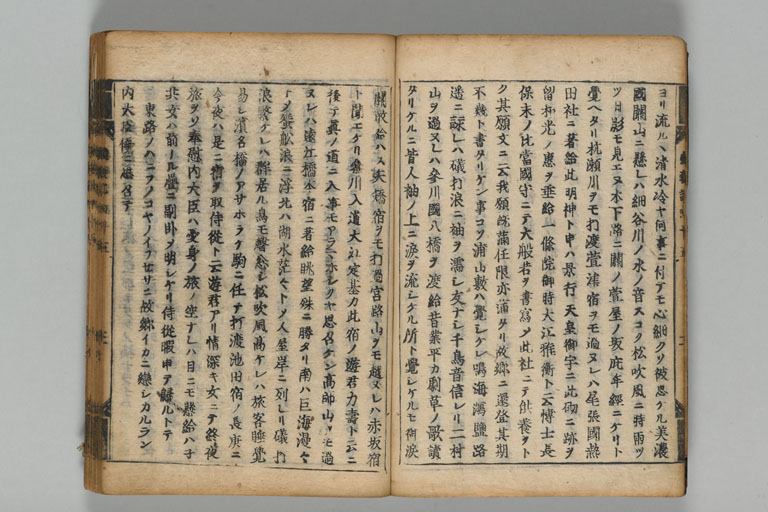 ヨリ流ルヽ清水冷ヤ何事ニ付テモ心細クソ被思ケル美濃
國關山ニ懸レハ細谷川ノ水ノ音スコク松吹風ニ時雨ツ
ツ日影モ見エヌ木下路ニ關ノ萱屋ノ板庇年經ニケリト
覺ヘタリ杭瀬川ヲモ打渡萱津宿ヲモ過ヌレハ尾張國熱
田社ニ著給此明神ト申ハ景行天皇御宇ニ此砌ニ跡ヲ
留和光ノ惠ヲ垂給一條院御時大江雅衡ト云博士長
保末ノ比當國守ニテ大般若ヲ書寫ノ此社ニテ供養ヲト
ク其願文ニ云我願既滿任限亦滿タリ故郷ニ還登其期
不幾ト書タリケン事コソ浦山敷ハ覺ケレ鳴海潟鹽路
遙ニ詠レハ礒打浪ニ袖ヲ濡シ友ナシ千鳥音信レリ二村
山ヲ過ヌレハ參川國八橋ヲ渡給昔業平カ劇草ノ歌讀
タリケルニ皆人袖ノ上ニ淚ヲ流シケル所ト覺シケルモ御淚
關敢給ハス矢橋宿ヲモ打過宮路山ヲモ越ヌレハ赤坂宿
ト聞エケリ參川入道大江定基カ此宿ノ遊君力壽ト云ニ
後テ眞ノ道ニ入事モアラマホシクヤ思召ケン高師山ヲモ過
ヌレハ遠江橋本宿ニ著給眺望殊ニ勝タリ南ハ巨海漫々
トノ蜑舩浪ニ浮北ハ湖水茫々トノ人屋岸ニ列レリ礒打
浪繁ケレハ群居ル鳥モ聲怱シ松吹風高ケレハ旅客睡覺
易シ濱名橋ノアサホラケ駒ニ任テ打渡池田宿ノ長庚ニ
今夜ハ是ニ宿ヲ取侍從ト云遊君アリ情深キ女ニテ終夜
旅ヲソ奉慰内大臣ハ憂身ノ旅ノ空ナレハ目ニモ懸給ハ子
共女ハ前ノル疊ニ副卧ソ明シケリ侍從暇申テ歸ルトテ
東路ノハニフノコヤノイフセサニ故郷イカニ戀シカルラン
内大臣優ニ思召テ